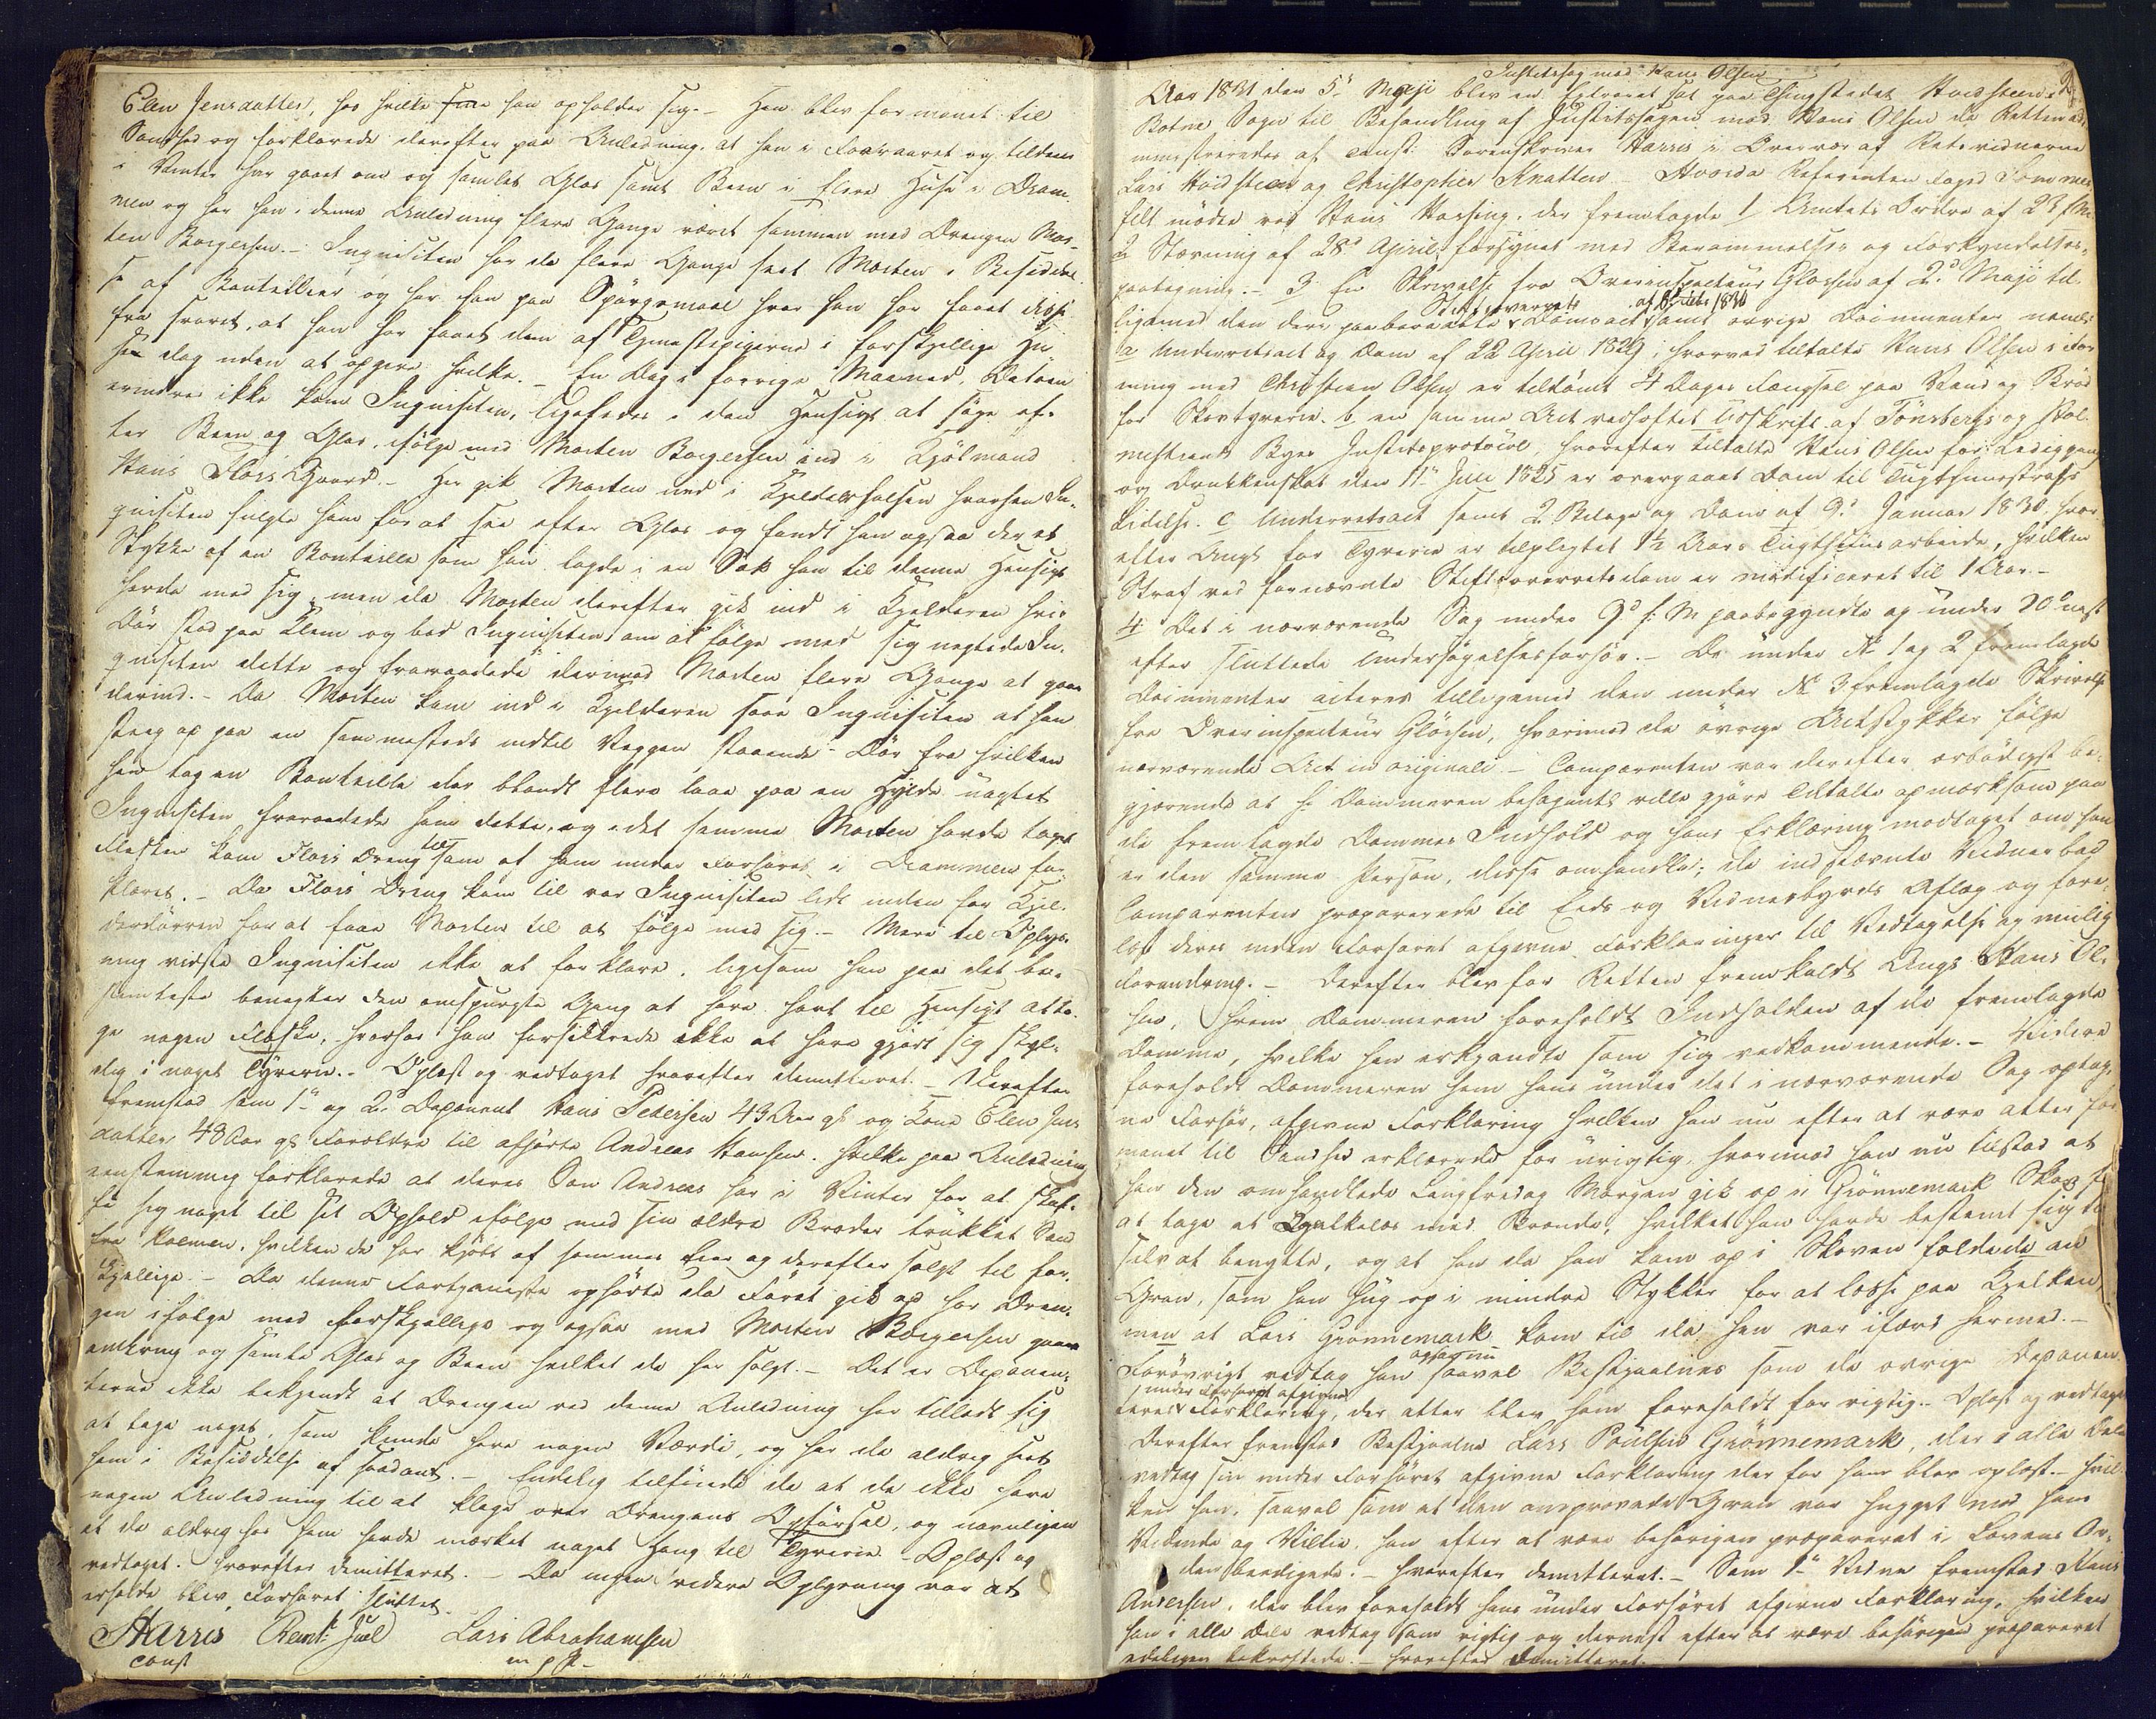 Elen Jensdatter, hos hvilke han opholder sig. – Han blev formanet til
Sandhed og forklarede derefter paa Anledning, at han i Foraaret og tildeels
i Vinter har gaaet om og samlet Glas samt Been i flere Huse i Dram-
men og har han i denne Anledning flere Gange været sammen med Drengen Mor-
ten Borgersen. – Inquisiten har da flere Gange seet Morten i Besiddel-
se af Bouteiller og har han paa Spørgsmaal hvor han har faaet disse
fra svaret, at han har faaet dem af Tjenestepigerne i forskjellige Hu
se dog uden at opgive hvilke. – En Dag i forrige Maaned, Datoen
erindres ikke kom Inquisiten, ligeledes i den Hensigt at søge ef-
ter Been og Glas, ifølge med Morten Borgersen ind i Kjøbmand
Hans Flors Gaard. – Her gik Morten ned i Kjelderhalsen hvorhen In-
quisiten fulgte ham for at see efter Glas og fandt han ogsaa der et
Stykke af en Bouteille som han lagde i en Sæk han til denne Hensigt
havde med sig, men da Morten derefter gik ind i Kjelderen hvis
Dør stod paa Klem og bad Inquisiten om at følge med sig negtede In-
quisiten dette og fraraadede derimod Morten flere Gange at gaae
derind. – Da Morten kom ind i Kjelderen saae Inquisiten at han
steeg op paa en sammesteds indtil Væggen staaende Dør fra hvilken
han tog en Bouteille der blandt flere laae paa en Hylde uagtet
Inquisiten fraraadede ham dette, og idet samme Morten havde taget
Flasken kom Flors Dreng til som af ham under Forhøret i Drammen for-
klaret. – Da Flors Dreng kom til var Inquisiten lidt uden for Kjel-
derdørren for at faae Morten til at følge med sig. – Mere til Oplys-
ning vidste Inquisiten ikke at forklare, ligesom han paa det be-
stemteste benegter den omspurgte Gang at have havt til Hensigt at ta-
ge nogen Flaske, hvorhos han forsikkrede ikke at have gjort sig skyl-
dig i noget Tyverie. – Oplæst og vedtaget hvorefter demitteret. – Derefter
fremstod som 1te og 2den Deponent Hans Pedersen 43 Aar gl og Kone Elen Jens
datter 48 Aar gl Forældre til afhørte Andreas Hansen, hvilke paa Anledning
eenstemmig forklarede at deres Søn Andreas har i Vinter for at skaf-
fe sig noget til sit Ophold ifølge med sin ældre Broder trukket Sand
fra Koemen, hvilken de har kjøbt af sammes Eier og derefter solgt til for-
skjellige. – Da denne Fortjeneste ophørte da Føret gik op har Dren-
gen ifølge med forskjellige og ogsaa med Morten Borgersen gaaet
omkring og samlet Glas og Been hvilket de har solgt. – Det er Deponen-
terne ikke bekjendt at Drengen ved denne Anledning har tilladt sig
at tage noget, som kunde have nogen Værdi, og har de aldrig seet
ham i Besiddelse af saadant. – Endelig tilføiede de at de ikke have
nogen Anledning til at klage over Drengens Opførsel, og navnligen
at de aldrig hos ham havde mærket noget Hang til Tyverie. – Oplæst og
vedtaget. hvorefter demitteret. – Da ingen videre Oplysning var at
erholde blev Forhøret sluttet.
Harris Bernt Juel Lars Abrahamsen
const m p P –
Justitssag mod Hans Olsen
Aar 1831 den 5te Maji blev en Extraret sat paa Thingstedet Hvidsteen i
Botne Sogn til Behandling af Justitssagen mod Hans Olsen da Retten ad-
ministreredes af const: Sorenskriver Harris i Overvær af Retsvidnerne
Lars Hvidsteen og Christopher Knatten – Hvorda Referenten Foged Sommer-
felt mødte ved Hans Hassing, der fremlagde 1/ Amtets Ordre af 23 f M
2 Stævning af 28de April forsynet med Berammelses og Forkyndelses-
paategning. – 3 En Skrivelse fra Overinspecteur Glørsen af 2den Maji til-
Stiftsoverrets af 8 1830
ligemed den deri paaberaabte Domsact samt øvrige Documenter nemlig
a Underretsact og Dom af 22 April 1829, hvorved tiltalte Hans Olsen i For
ening med Christian Olsen er tildømt 4 Dages Fængsel paa Vand og Brød
for Skovtyverie. b en samme Act vedhæftet Udskrift af Tønsbergs og Hol-
mestrands Byes Justitsprotocol, hvorefter tiltalte Hans Olsen for Lediggang
og Drukkenskab den 11te Juli 1825 er overgaaet Dom til Tugthuusstrafs
Lidelse. c Underretsact samt 2 Bilage og Dom af 9de Januar 1830, hvor
efter Angl for Tyverie er tilpligtet 1½ Aars Tugthuusarbeide, hvilken
Straf ved fornævnte Stiftsoverretsdom er modificeret til 1 Aar. –
4 Det i nærværende Sag under 9de f. M paabegyndte og under 20de næst
efter sluttede Undersøgelsesforhør. – De under No 1 og 2 fremlagde
Documenter acteres tilligemed den under No 3 fremlagde Skrivelse
fra Overinspecteur Glørsen, hvorimod de øvrige Actstykker følge
nærværende Act in originali – Comparenten var derefter ærbødigst be-
gjærende at hr. Dommeren behageligt ville gjøre Tiltalte opmærksom paa
de fremlagde Dommes Indhold og hans Erklæring modtaget om han
er den samme Person, disse omhandler; de indstævnte Vidner bad
Comparenten præparerede til Eeds og Vidnesbyrds Aflæg og fore-
læst deres inden Forhøret afgivne Forklaringer til Vedtagelse og mulig
Forandring. – Derefter blev for Retten fremkaldt Angl Hans Ol-
sen, hvem Dommeren foreholdt Indholden af de fremlagde
Domme, hvilke han erkjendte som sig vedkommende. – Videre
foreholdt Dommeren ham hans under det i nærværende Sag optag-
ne Forhør, afgivne Forklaring hvilken han nu efter at være atter for
manet til Sandhed erklærede for urigtig, hvorimod han nu tilstod at
han den omhandlede Langfredag Morgen gik op i Grønnemark Skov for
at tage et Kjelkelæs med Brænde, hvilket han havde bestemt sig til
selv at benytte, og at han da han kom op i Skoven fældede en
Gran, som han hug op i mindre Stykker for at læsse paa Kjelken,
men at Lars Grønnemark kom til da han var ifærd hermed. –
ogsaa nu
Forøvrigt vedtog han saavel Bestjaalnes som de øvrige Deponen-
under Forhøret afgivne
ters Forklaring, der atter blev ham foreholdt for rigtig. – Oplæst og vedtaget
Derefter fremstod Bestjaalne Lars Poulsen Grønnemark, der i alle Dele
vedtog sin under Forhøret afgivne Forklaring der for ham blev oplæst. – hvil-
ken han, saavel som at den omprovede Gran var hugget mod hans
Vidende og Villie, han efter at være behørigen præpareret i Lovens Or-
den beedigede. – hvorefter demitteret. – Som 1te Vidne fremstod Hans
Andersen, der blev foreholdt hans under Forhøret afgivne Forklaring, hvilken
han i alle Dele vedtog som rigtig og dernæst efter at være behørigen præpareret
edeligen bekræftede. – hvorefter demitteret.